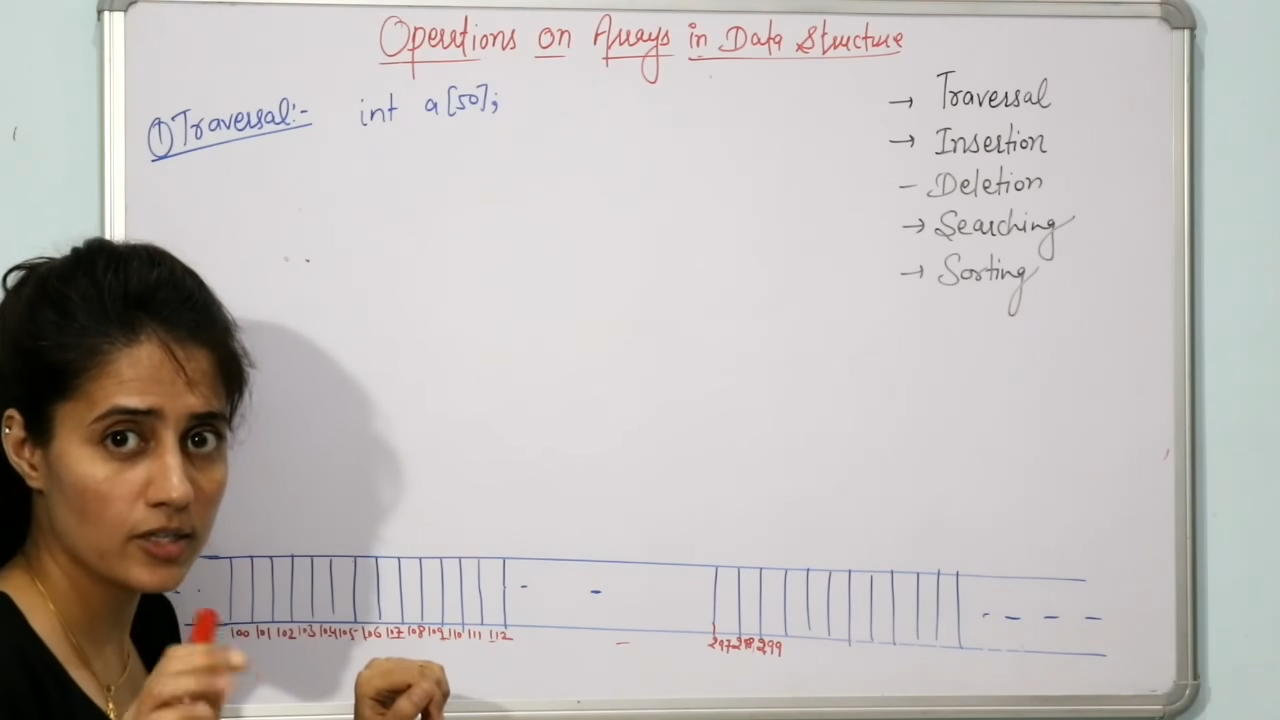 Operations on Arrays in Data Structure
① Traversal:- int a[50];
→ Traversal
→ Insertion
- Deletion
→ Searching
→ Sorting
100 101 102 103 104 105 106 107 108 109 110 111 112
297 298 299